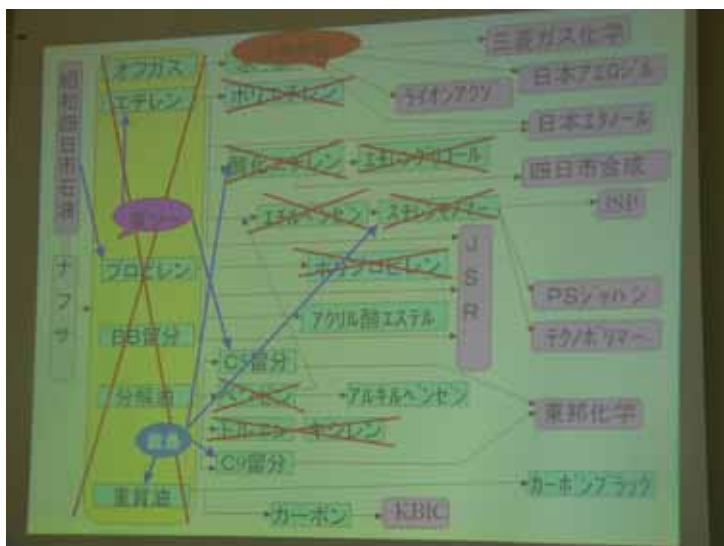 昭和四日市石油
ナフサ
オフガス
エチレン
プロピレン
BB留分
分解油
重質油
ポリエチレン
酸化エチレン
エチレングリコール
エチルベンゼン
スチレンモノマー
ポリプロピレン
アクリル酸エステル
C5留分
ベンゼン
アルキルベンゼン
トルエン
キシレン
C9留分
カーボン
KBIC
JSR
三菱ガス化学
日本アエロジル
ライオンアクゾ
日本エタノール
四日市合成
ISP
PSジャパン
テクノポリマー
東邦化学
カーボンブラック